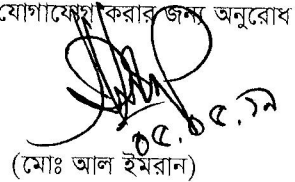 যোগাযোগ করার জন্য অনুরোধ
০৫.০৫.১৯
(মোঃ আল ইমরান)